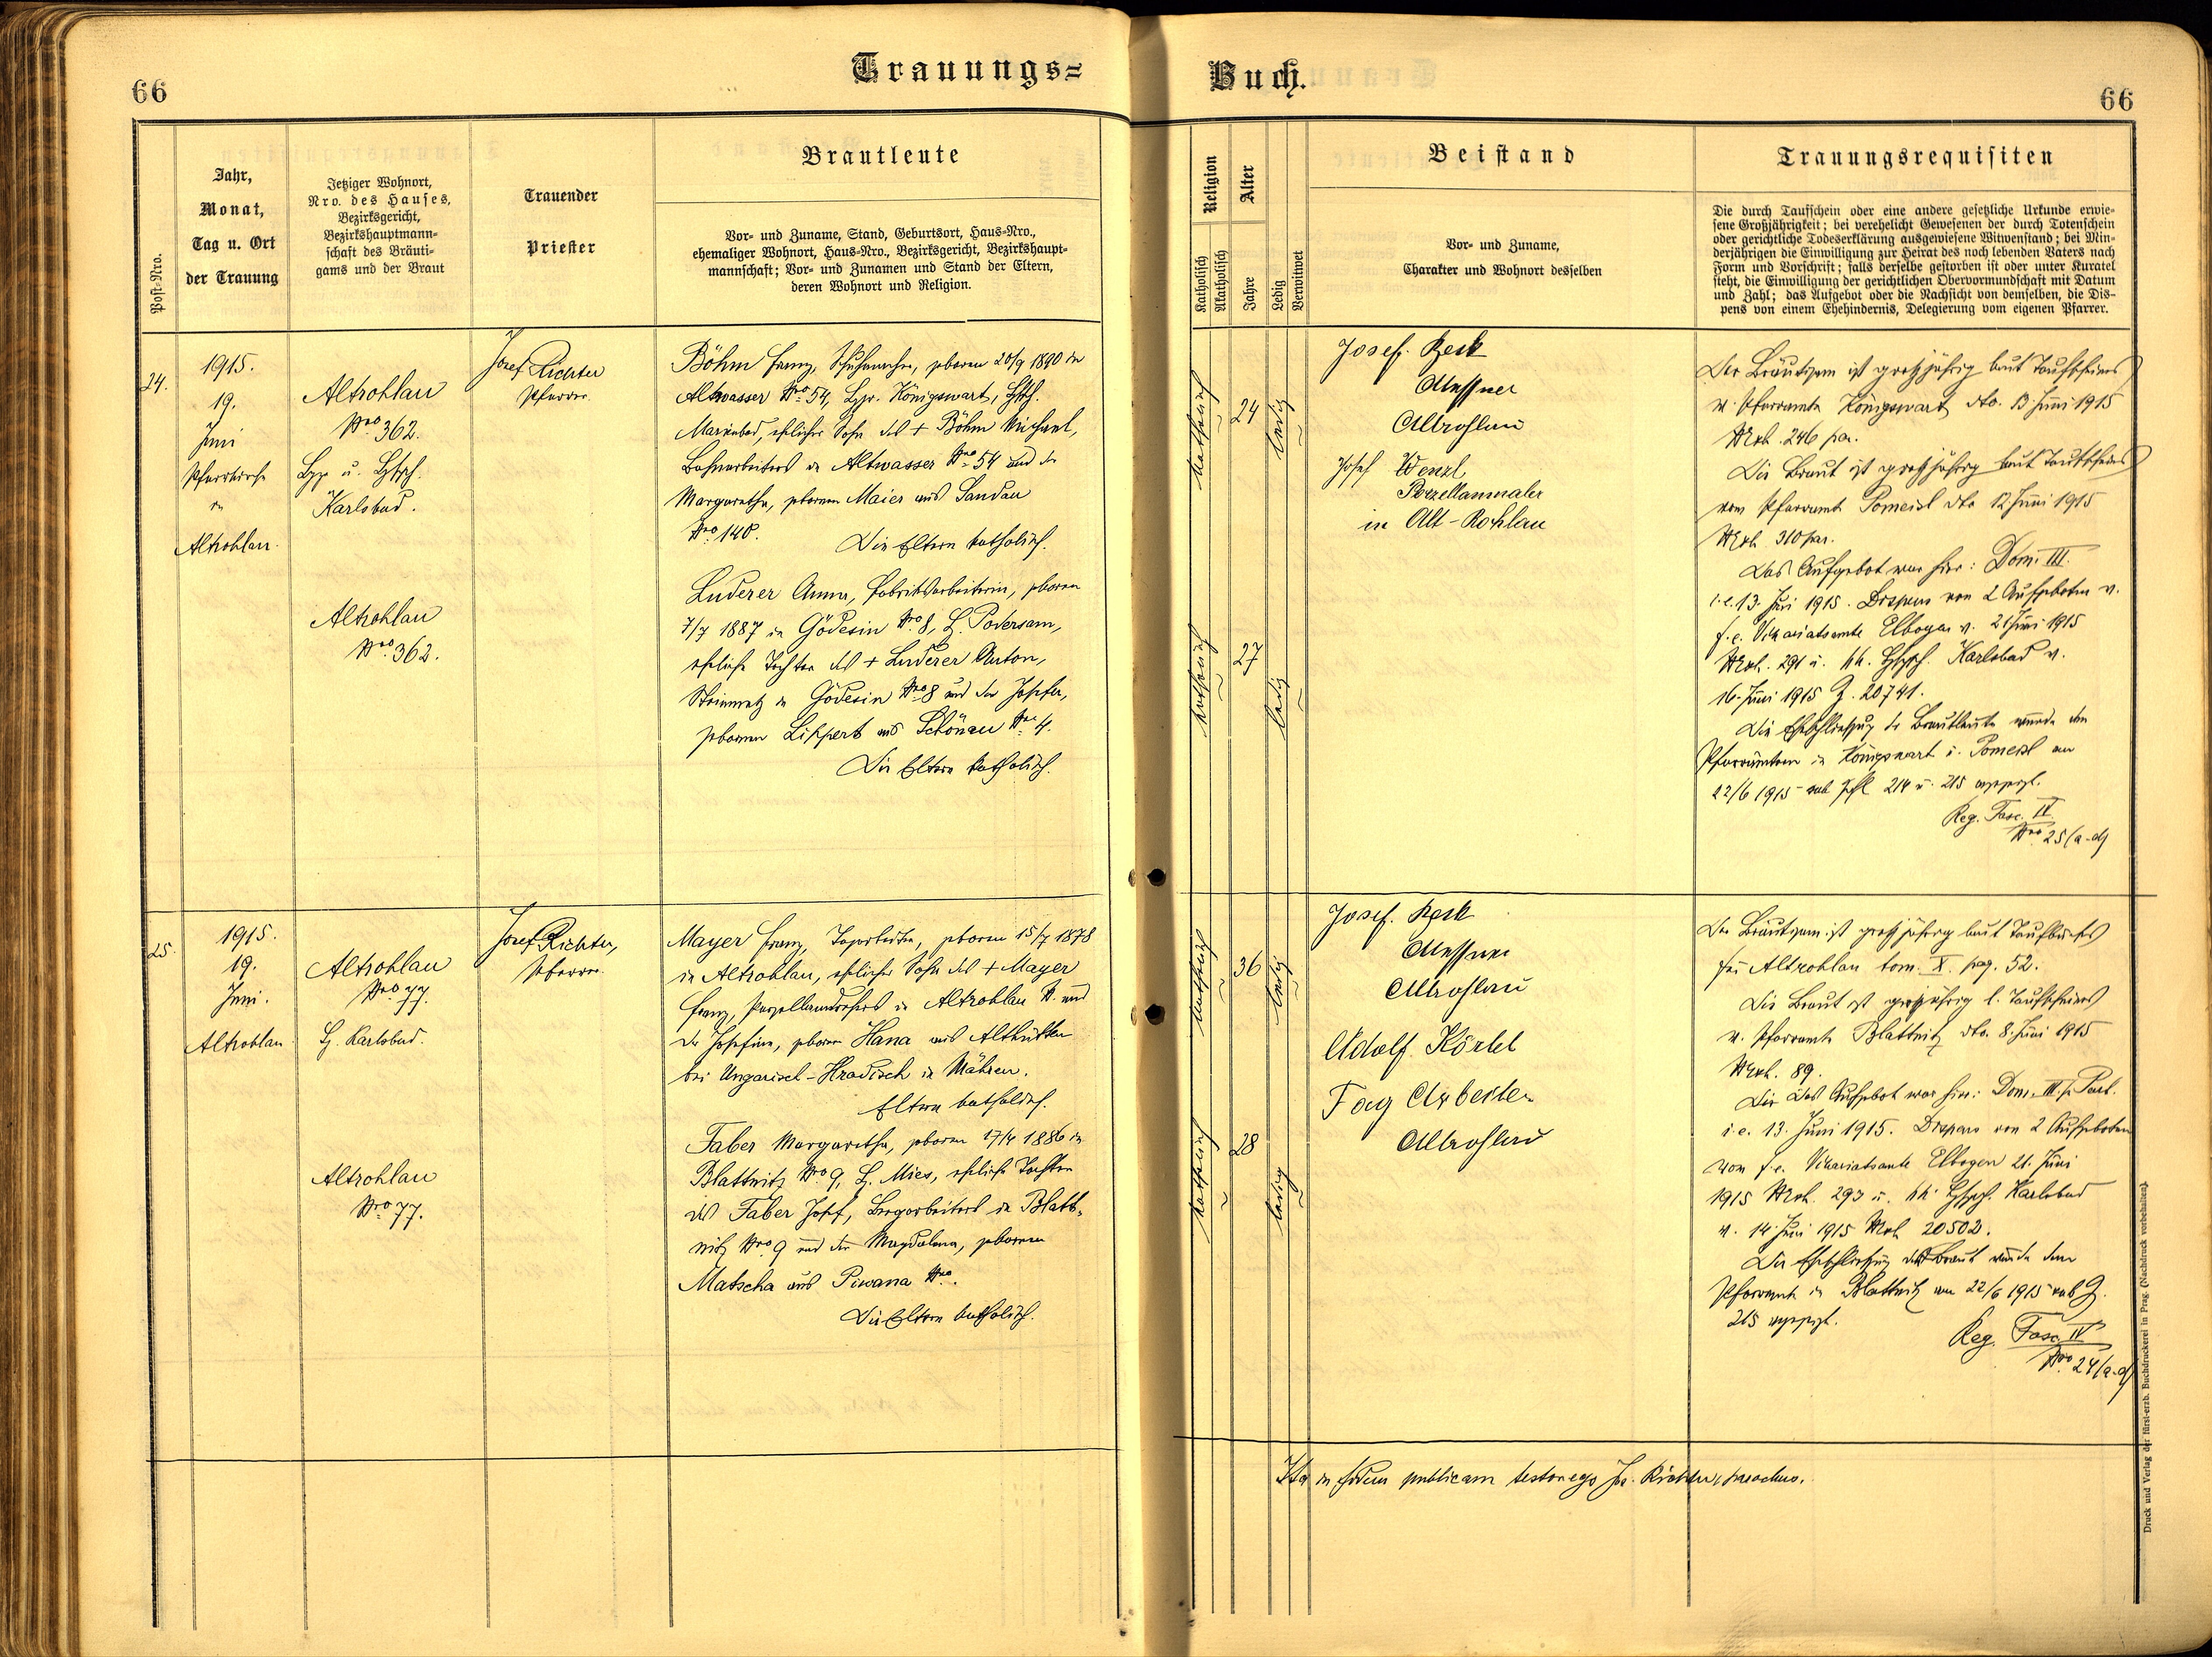 66
Trauungs=
Jahr,
Monat,
Tag u. Ort
der Trauung
Post-Nro.
Jetziger Wohnort,
Nro. des Hauses,
Bezirksgericht,
Bezirkshauptmann-
schaft des Bräuti-
gams und der Braut
Trauender
Priester
Brautleute
Vor- und Zuname, Stand, Geburtsort, Haus-Nro.,
ehemaliger Wohnort, Haus-Nro., Bezirksgericht, Bezirkshaupt-
mannschaft; Vor- und Zunamen und Stand der Eltern,
deren Wohnort und Religion.
24.
1915.
19.
Juni
Pfarrkirche
in
Altrohlau.
Altrohlau
Nro 362.
Bzg u. Bhpsch.
Karlsbad.
Josef Richter
Pfarrer.
Böhm Franz, Schuhmacher, geboren 20/9 1890 in
Altwasser Nro 54, Bzg. Königswart, Bhsch.
Marienbad, ehelicher Sohn des + Böhm Michael,
Bahnarbeiters in Altwasser Nro 54 und der
Margaretha, geborenen Maier aus Sandau
Nro 140.
Die Eltern katholisch.
Altrohlau
Nro 362.
Luderer Anna, Fabriksarbeiterin, geboren
7/7 1887 in Gödesin Nro 8, B. Podersam,
eheliche Tochter des + Luderer Anton,
Steinmetz in Gödesin Nro 8 und der Josefa,
geborenen Lippert aus Schönau Nro 4.
Die Eltern katholisch.
25.
1915.
19.
Juni.
Altrohlau
Altrohlau
Nro 77.
B. Karlsbad.
Josef Richter,
Pfarrer.
Mayer Franz, geboren 15/7 1878
in Altrohlau, ehelicher Sohn des + Mayer
Franz, Porzellandrehers in Altrohlau N. und
der Josefine, geboren Hana aus Althütten
bei Ungarisch-Hradisch in Mähren.
Eltern katholisch.
Altrohlau
Nro 77.
Faber Margaretha, geboren 17/4 1886 in
Blattnitz Nro 9, B. Mies, eheliche Tochter
des Faber Josef, Bergarbeiters in Blatt-
nitz Nro 9 und der Magdalena, geborenen
Matscha aus Piwana Nro.
Die Eltern katholisch.
Buch.
66
Religion
Katholisch
Akatholisch
Alter
Jahre
Ledig
Verwitwet
Beistand
Vor- und Zuname,
Charakter und Wohnort desselben
Trauungsrequisiten
Die durch Taufschein oder eine andere gesetzliche Urkunde erwie-
sene Großjährigkeit; bei verehelicht Gewesenen der durch Totenschein
oder gerichtliche Todeserklärung ausgewiesene Witwenstand; bei Min-
derjährigen die Einwilligung zur Heirat des noch lebenden Vaters nach
Form und Vorschrift; falls derselbe gestorben ist oder unter Kuratel
steht, die Einwilligung der gerichtlichen Obervormundschaft mit Datum
und Zahl; das Aufgebot oder die Nachsicht von demselben, die Dis-
pens von einem Ehehindernis, Delegierung vom eigenen Pfarrer.
katholisch
24
ledig
katholisch
27
ledig
Josef
Messner
Altrohlau
Josef Wenzl
Porzellanmaler
in Alt-Rohlau
Der Bräutigam ist großjährig laut Taufscheines
v. Pfarramte Königswart dto. 13. Juni 1915
NExh. 246 par.
Die Braut ist großjährig laut Taufscheines
vom Pfarramt Pomeisl dto 12 Juni 1915
NExh 310 par.
Das Aufgebot war hier: Dom. III.
i.e. 13. Juni 1915. Dispens von 2 Aufgeboten v.
f.e. Vikariatsamte Elbogen v. 21 Juni 1915
NExh. 291 u. kk. Bhpsch. Karlsbad v.
16. Juni 1915 Z. 20741.
Die Eheschließung der Brautleute wurde den
Pfarrämtern in Königswart u. Pomeisl am
22/6 1915 sub 214 u. 215 angezeigt.
Reg. Fasc. IV
Nro 25 (a-d)
katholisch
36
ledig
katholisch
28
ledig
Josef.
Messner
Altrohlau
Adolf
Tag Arbeiter
Altrohlau
Der Bräutigam ist großjährig laut Taufbuches
für Altrohlau tom. X. pag. 52.
Die Braut ist großjährig l. Taufscheines
v. Pfarramte Blattnitz dto. 8. Juni 1915
NExh. 89.
Die Das Aufgebot war hier: Dom. III. p. Pent.
i.e. 13. Juni 1915. Dispens von 2 Aufgeboten
vom f.e. Vikariatsamte Elbogen 21. Juni
1915 NExh. 293 u. kk. Bhpsch. Karlsbad
v. 14. Juni 1915 NExh 20502.
Die Eheschließung der Braut wurde dem
Pfarramte in Blattnitz am 22/6 1915 sub Z.
215 angezeigt.
Reg. Fasc. IV
Nro 24 (a-d)
Ita in fidem publicam testor ego Jos. Richter, parochus.
Druck und Verlag der fürst-erzb. Buchdruckerei in Prag. (Nachdruck vorbehalten).